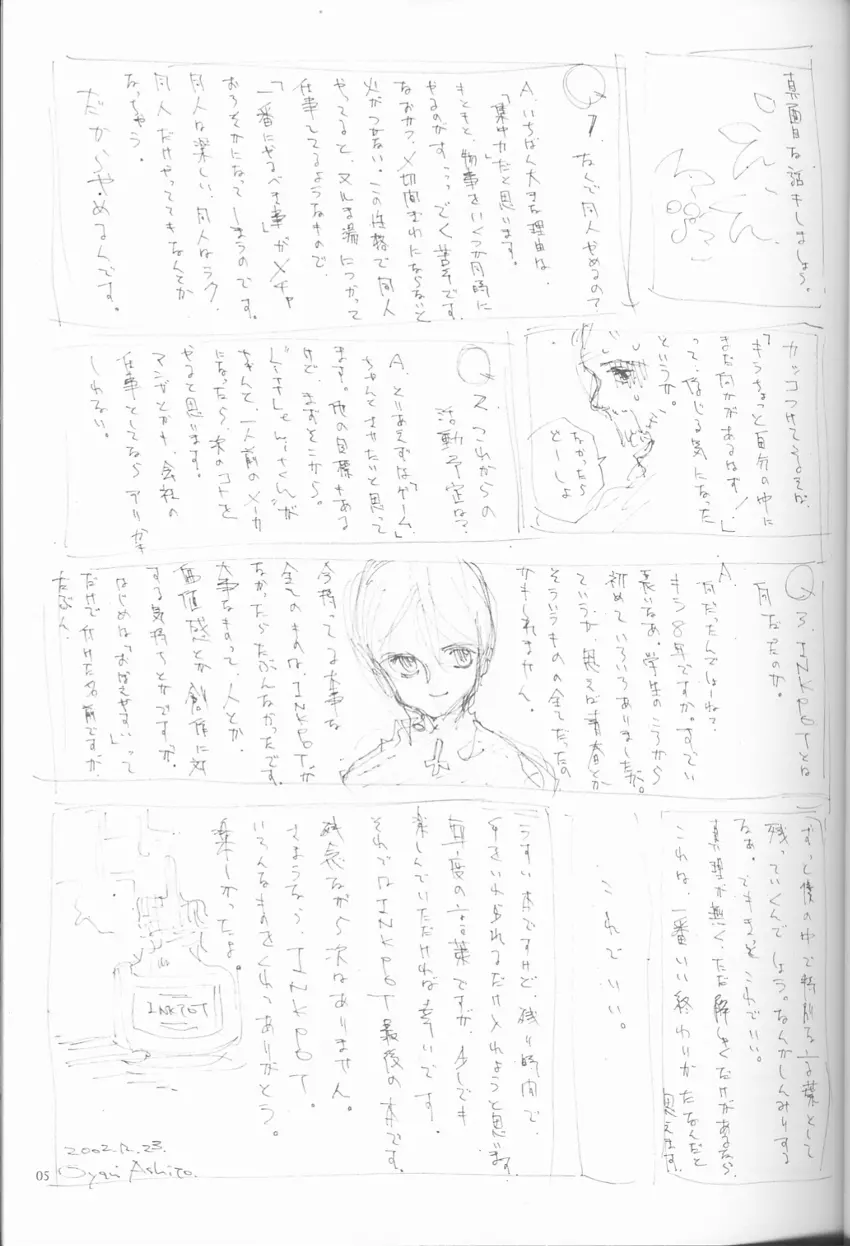 真面目な話をしましょう。
Q1.なんで同人やめるの?
A.いちばん大きな理由は、
「集中力」だと思います。
もともと、物事をいくつか同時に
やるのがすっごく苦手です。
なおかつ、〆切間ぎわにならないと
火がつかない。この性格で同人
やってると、ヌルま湯につかって
仕事してるようなもので、
「一番にやるべき事」がメチャ
おろそかになってしまうのです。
同人は楽しい、同人はラク、
同人だけやっててもなんとか
なっちゃう。
だからやめるんです。
カッコつけてるようだが、
「もうちょっと自分の中に
まだ何かがあるはず!」
って、信じる気になった
というか。
なかったら
どーしよ
Q2.これからの
活動予定は?
A.とりあえずは「ゲーム」
ちゃんとさせたいと思って
ます。他の目標もある
けど、まずそこから。
ちゃんと、一人前のメーカ
になったら、次のコトを
やると思います。
マンガとかも、会社の
仕事としてなら アリかも
しれない。
Q3.INKPOTとは
何だったのか。
A.
何だったんでしょーねぇ。
もう8年ですか。すごい
長いなあ。学生のころから
初めていろいろありましたが。
ていうか、思えば青春とか
そういうものの全てだったの
かもしれません。
今持ってる大事な
全てのものは、INKPOTが
なかったらたぶんなかったです。
大事なものって、人とか、
価値感とか創作に対
する気持ちとかですが。
はじめは「おぼえやすい」って
だけで付けた名前ですが、
たぶん、
ずっと僕の中で特別な言葉として
残っていくんでしょう。なんかしんみりする
なぁ。でもまぁ、これでいい。
これは、一番いい終わりかたなんだと
思えます。
これでいい。
うすい本ですけど、残り時間で、
手をいれられるだけ入れようと思います。
毎度の言葉ですが、少しでも
楽しんでいただければ幸いです。
それではINKPOT最後の本です。
残念ながら次はありません。
さようなら、INKPOT。
いろんなものをくれてありがとう。
楽しかったよ。
INKPOT
2002.12.23.
Oyari Ashito.
05